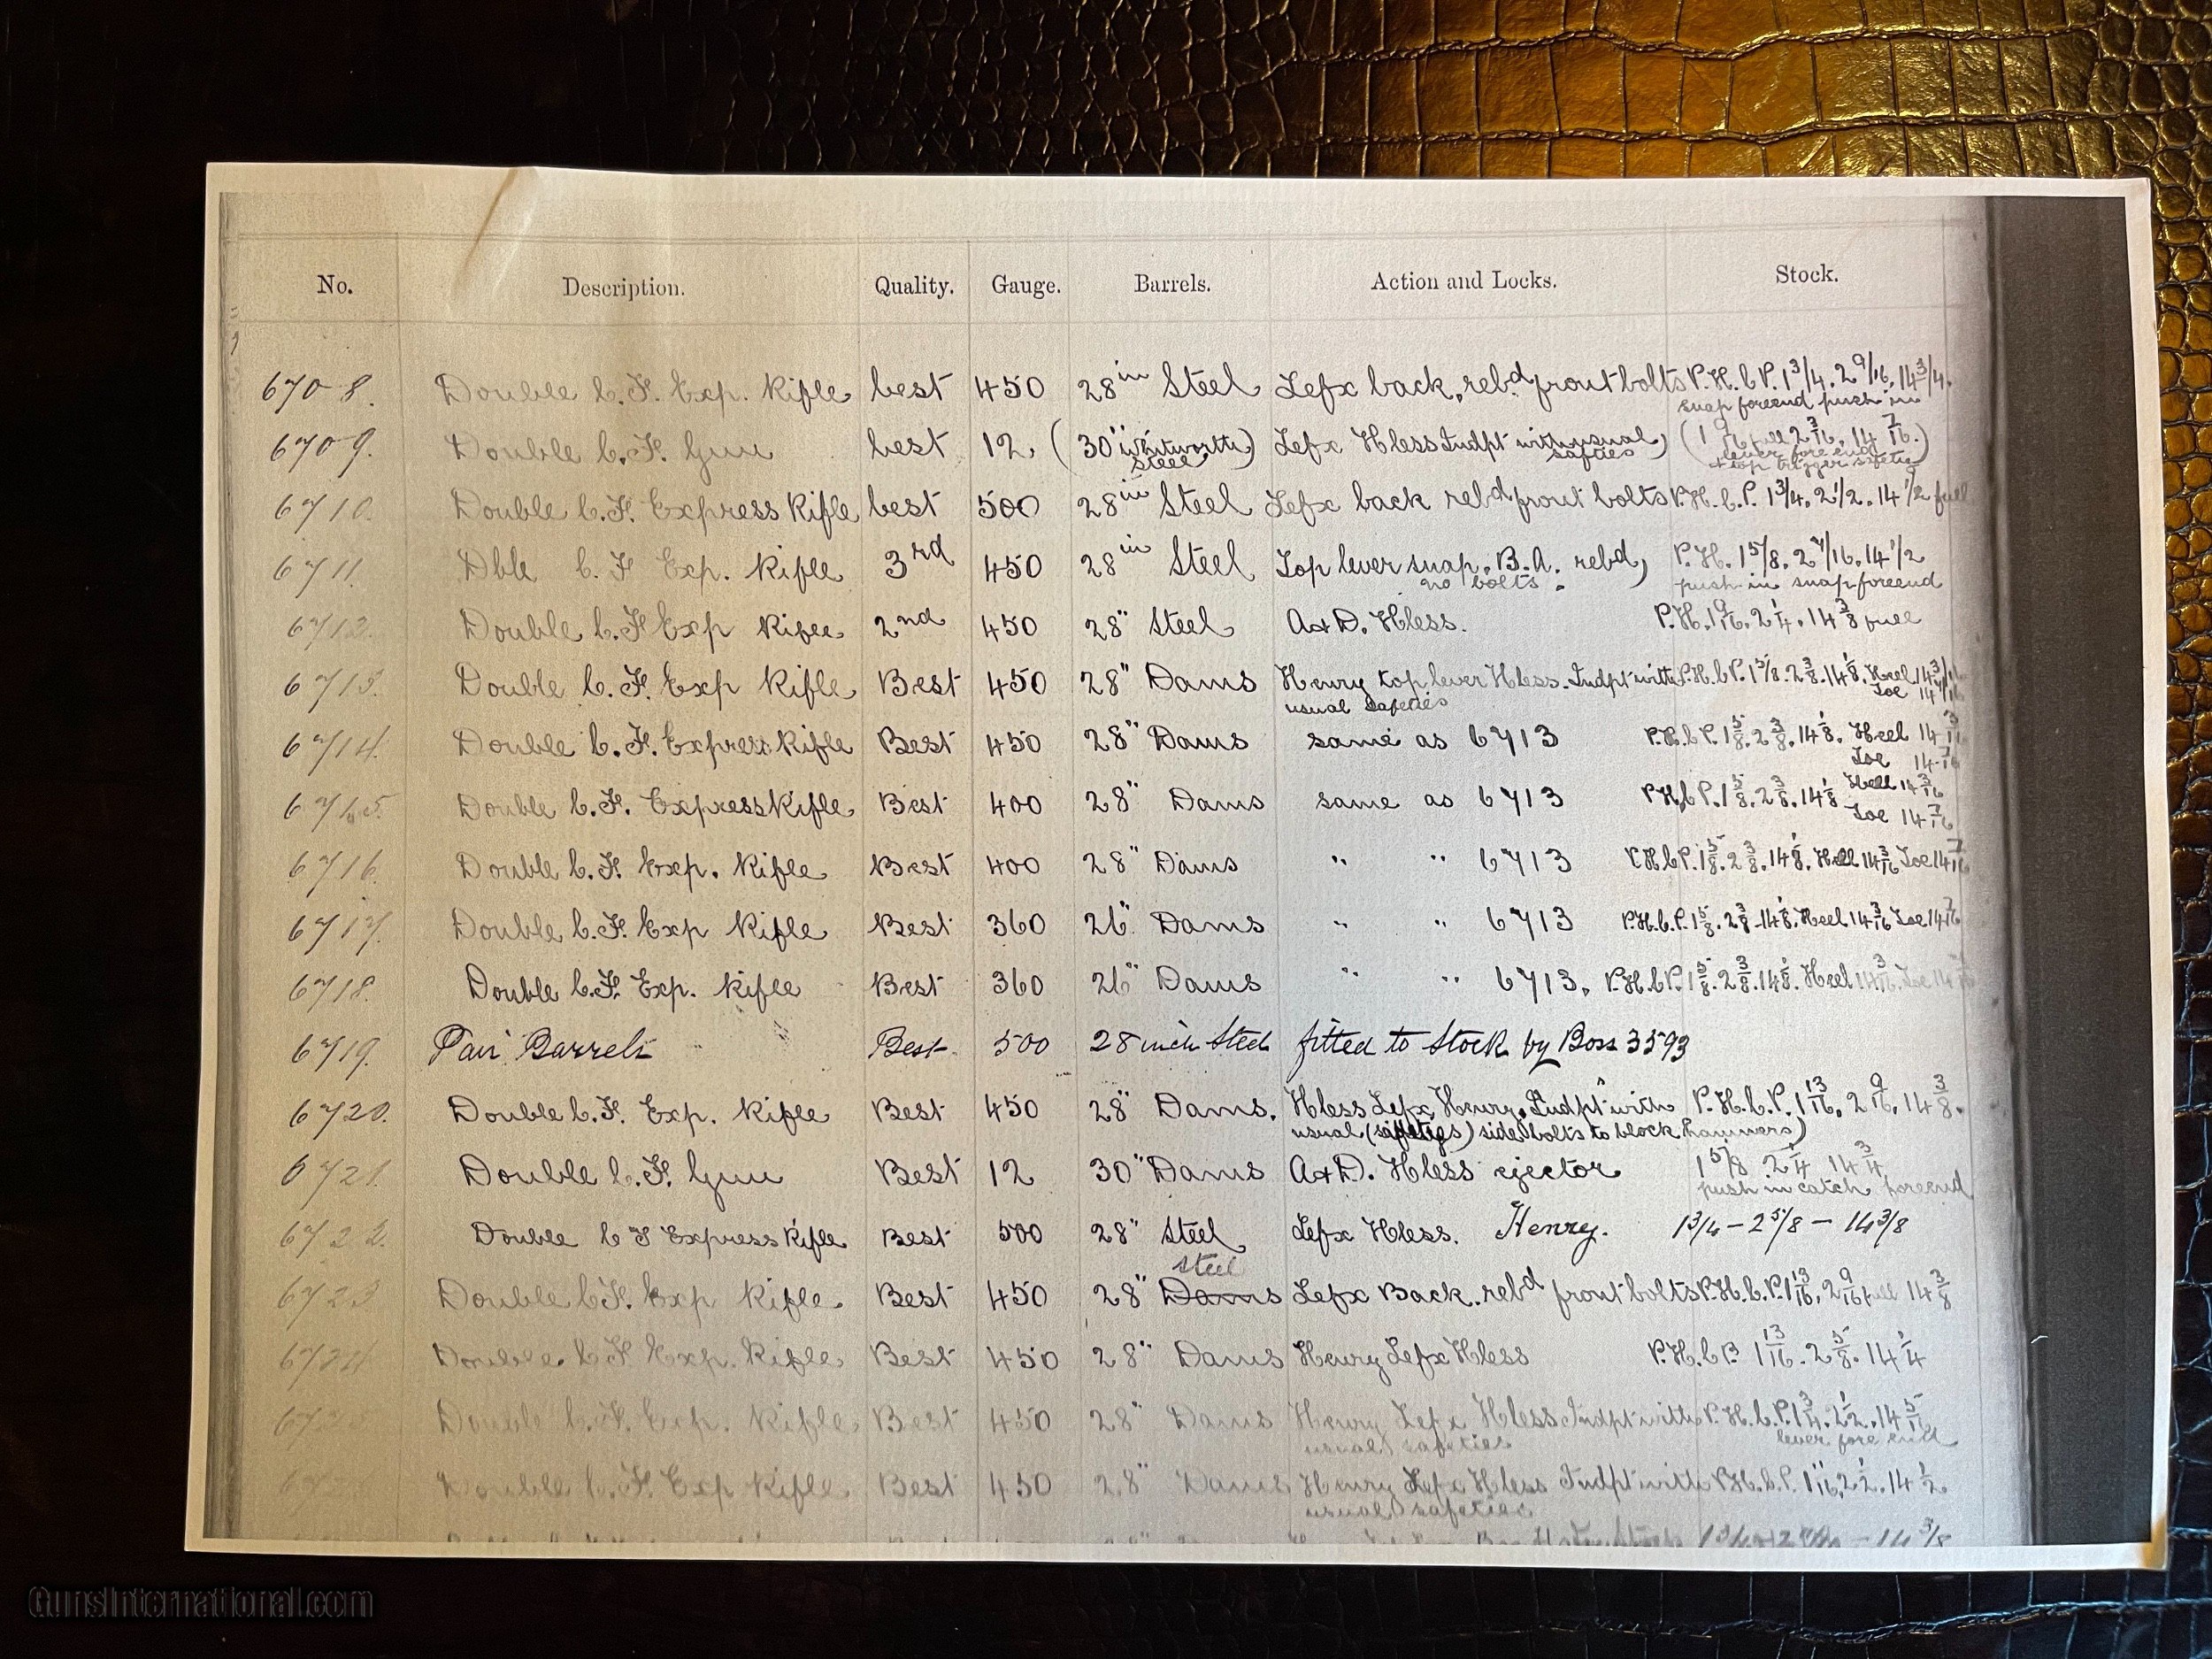 No. Description. Quality. Gauge. Barrels. Action and Locks. Stock.
6708. Double C.F. Exp. Rifle best 450 28in Steel Lefx back, rebd front bolts P.H.C.P. 1 3/4. 2 9/16. 14 3/4.
snap forend push in
6709. Double C.F. Gun best 12. (30" Whitworth) Lefx Hless Indpt with usual, (1 9/16 full 2 3/16. 14 7/16.)
Steel safties lever fore end
+ top trigger safties
6710. Double C.F. Express Rifle best 500 28in Steel Lefx back rebd front bolts P.H.C.P. 1 3/4. 2 1/2. 14 1/2 full
6711. Dble C.F Exp. Rifle 3rd 450 28in Steel Top lever snap. B.A. rebd, P.H. 1 5/8. 2 7/16. 14 1/2
no bolts. push in snap forend
6712. Double C.F Exp Rifle 2nd 450 28" Steel A&D. Hless. P.H. 1 9/16. 2 1/4. 14 3/8 full
6713. Double C.F. Exp Rifle Best 450 28" Dams Henry top lever Hless. Indpt with P.H.C.P. 1 5/8. 2 3/8. 14 1/8. Heel 14 3/16
usual safeties Toe 14 7/16
6714. Double C.F. Express Rifle Best 450 28" Dams same as 6713 P.H.C.P. 1 5/8. 2 3/8. 14 1/8. Heel 14 3/16
Toe 14 7/16
6715. Double C.F. Express Rifle Best 400 28" Dams same as 6713 P.H.C.P. 1 5/8. 2 3/8. 14 1/8 Heel 14 3/16
Toe 14 7/16
6716. Double C.F. Exp. Rifle Best 400 28" Dams " " 6713 P.H.C.P. 1 5/8. 2 3/8. 14 1/8. Heel 14 3/16 Toe 14 7/16
6717. Double C.F. Exp Rifle Best 360 26" Dams " " 6713 P.H.C.P. 1 5/8. 2 3/8. 14 1/8. Heel 14 3/16 Toe 14 7/16
6718. Double C.F. Exp. Rifle Best 360 26" Dams " " 6713. P.H.C.P. 1 5/8. 2 3/8. 14 1/8. Heel 14 3/16. Toe 14
6719. Pair Barrels Best 500 28 inch Steel fitted to Stock by Boss 3593
6720. Double C.F. Exp. Rifle Best 450 28" Dams. Hless Lefx Henry. Indpt with P.H.C.P. 1 13/16. 2 9/16. 14 3/8.
usual (safeties) side bolts to block hammers)
6721. Double C.F. Gun Best 12 30" Dams A&D. Hless ejector 1 5/8 2 1/4 14 3/4
push in catch forend
6722. Double C F Express Rifle Best 500 28" Steel Lefx Hless. Henry. 1 3/4 - 2 5/8 - 14 3/8
steel
6723 Double C.F. Exp Rifle. Best 450 28" Dams Lefx Back. rebd front bolts P.H.C.P. 1 13/16. 2 9/16 full 14 3/8
6724 Double C.F Exp. Rifle. Best 450 28" Dams Henry Lefx Hless P.H.C.P. 1 13/16. 2 5/8. 14 1/4
Double C.F. Exp. Rifle. Best 450 28" Dams Henry Lefx Hless Indpt with P.H.C.P. 1 3/4. 2 1/2. 14 5/16
usual safeties lever fore end
Double C.F Exp Rifle Best 450 28" Dams Henry Lefx Hless Indpt with P.H.C.P. 1 11/16. 2 1/2. 14 1/2
usual safeties
14 3/8
GunsInternational.com